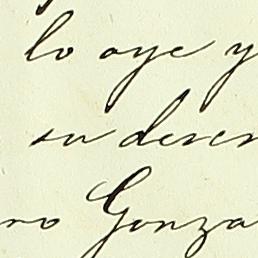 lo oye y
su deser
ro Gonza